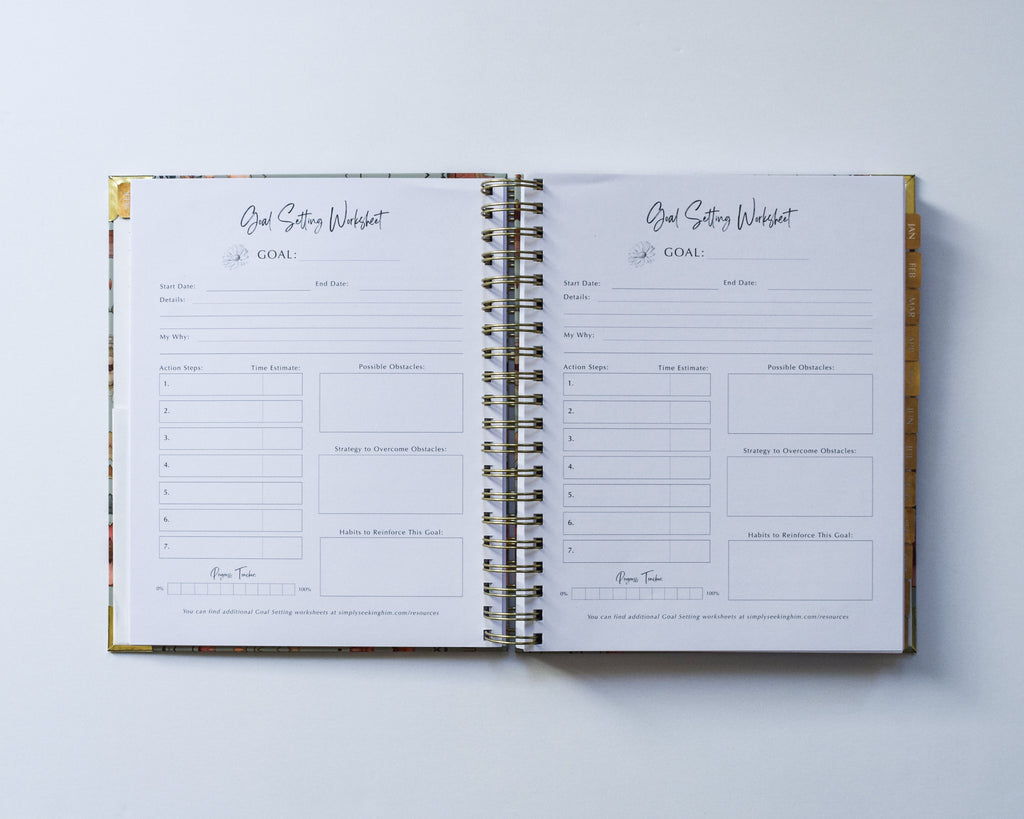 Goal Setting Worksheet
GOAL:
Start Date: End Date:
Details:
My Why:
Action Steps: Time Estimate:
1.
2.
3.
4.
5.
6.
7.
Possible Obstacles:
Strategy to Overcome Obstacles:
Habits to Reinforce This Goal:
Progress Tracker
0% 100%
You can find additional Goal Setting worksheets at simplyseekinghim.com/resources
Goal Setting Worksheet
GOAL:
Start Date: End Date:
Details:
My Why:
Action Steps: Time Estimate:
1.
2.
3.
4.
5.
6.
7.
Possible Obstacles:
Strategy to Overcome Obstacles:
Habits to Reinforce This Goal:
Progress Tracker
0% 100%
You can find additional Goal Setting worksheets at simplyseekinghim.com/resources
JAN
FEB
MAR
APR
JUN
JUL